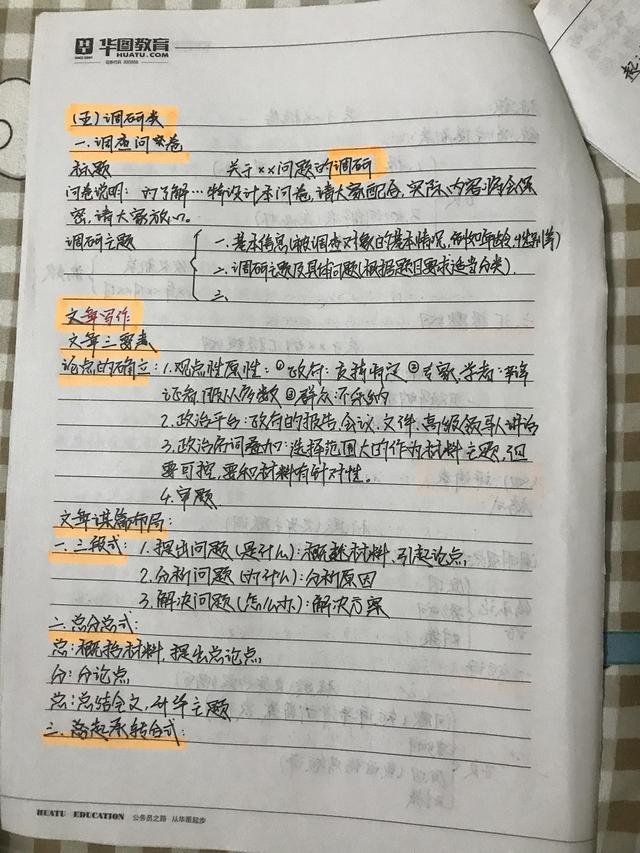 华图教育
HUATU.COM
(五)调研类
一.调查问卷
标题 关于××问题的调研
问卷说明: 为了解…特设计本问卷,请大家配合,实际内容将会保
密,请大家放心。
调研主题 一.基本信息(被调查对象的基本情况,例如年龄,性别等)
二.调研主题及具体问题(根据题目要求适当分类).
三.
文章写作:
文章三要素
论点的确立: 1.观点性原性: ①政府: 支持肯定 ②专家,学者:
证 服从多数 ③群众:不采纳
2.政治平台:政府的报告,会议、文件、高级领导人讲话
3.政治 词 :选择范围大的作为材料主题,但
要可控,要和材料有针对性。
4.审题
文章谋篇布局:
一.三段式: 1.提出问题(是什么):概括材料、引起论点,
2.分析问题(为什么):分析原因
3.解决问题(怎么办):解决方案
二.总分总式:
总:概括材料,提出总论点
分:分论点
总:总结全文,升华主题
三. 起承转合式:
HUATU EDUCATION 公务员之路 从华图起步